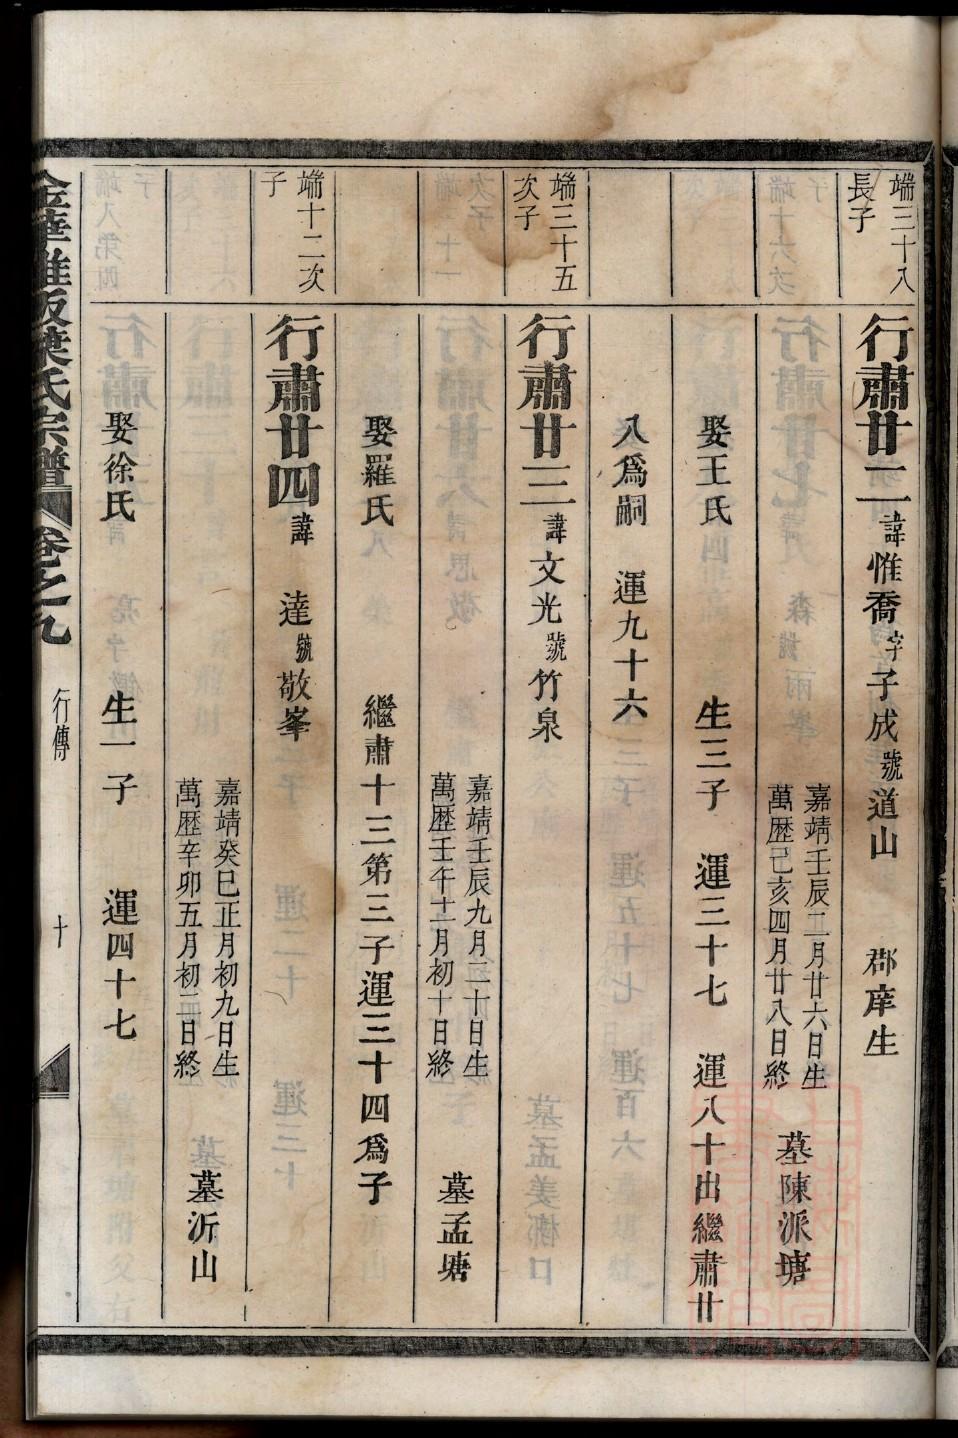 端三十八
長子
行肅廿二諱惟喬字子成號道山 郡庠生
嘉靖壬辰二月廿六日生
萬歷己亥四月廿八日終
墓陳派塘
娶王氏 生三子 運三十七 運八十出繼肅廿
八為嗣 運九十六
端三十五
次子
行肅廿三諱文光號竹泉
嘉靖壬辰九月二十日生
萬歷壬午十二月初十日終
墓孟塘
娶羅氏 繼肅十三第三子運三十四為子
端十二次
子
行肅廿四諱 達號敬峯
嘉靖癸巳正月初九日生
萬歷辛卯五月初二日終
墓沂山
娶徐氏 生一子 運四十七
葉氏宗譜 卷之九 行傳 十